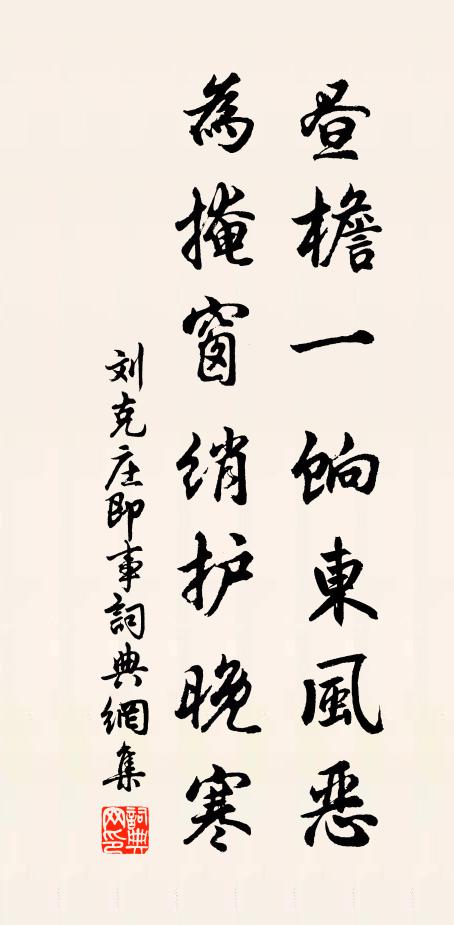 昼檐一饷東風恶
為掩窗绡护晚寒
刘克庄即事詞典網集
詞典網印